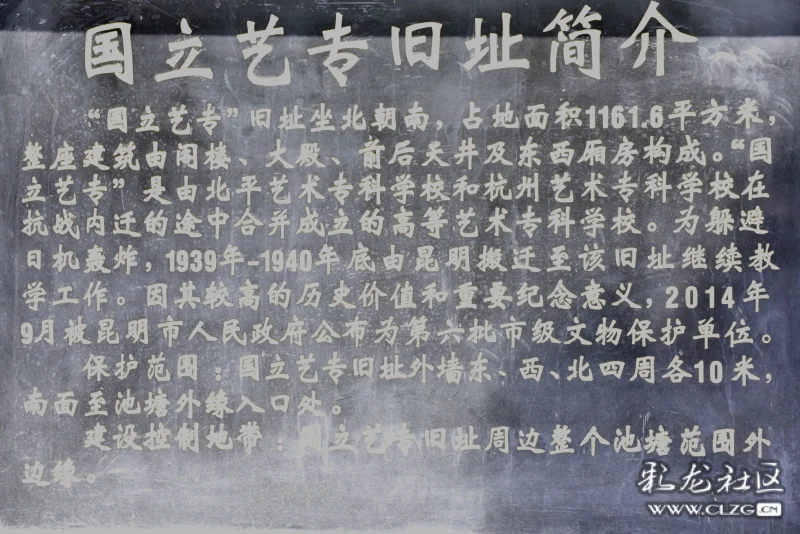 国立艺专旧址简介
“国立艺专”旧址坐北朝南，占地面积1161.6平方米，
整座建筑由阁楼、大殿、前后天井及东西厢房构成。“国
立艺专”是由北平艺术专科学校和杭州艺术专科学校在
抗战内迁的途中合并成立的高等艺术专科学校。为躲避
日机轰炸，1939年-1940年底由昆明搬迁至该旧址继续教
学工作。因其较高的历史价值和重要纪念意义，2014年
9月被昆明市人民政府公布为第六批市级文物保护单位。
保护范围：国立艺专旧址外墙东、西、北四周各10米，
南面至池塘外缘入口处。
建设控制地带：国立艺专旧址周边整个池塘范围外
边缘。
彩龙社区
WWW.CLZG.CN